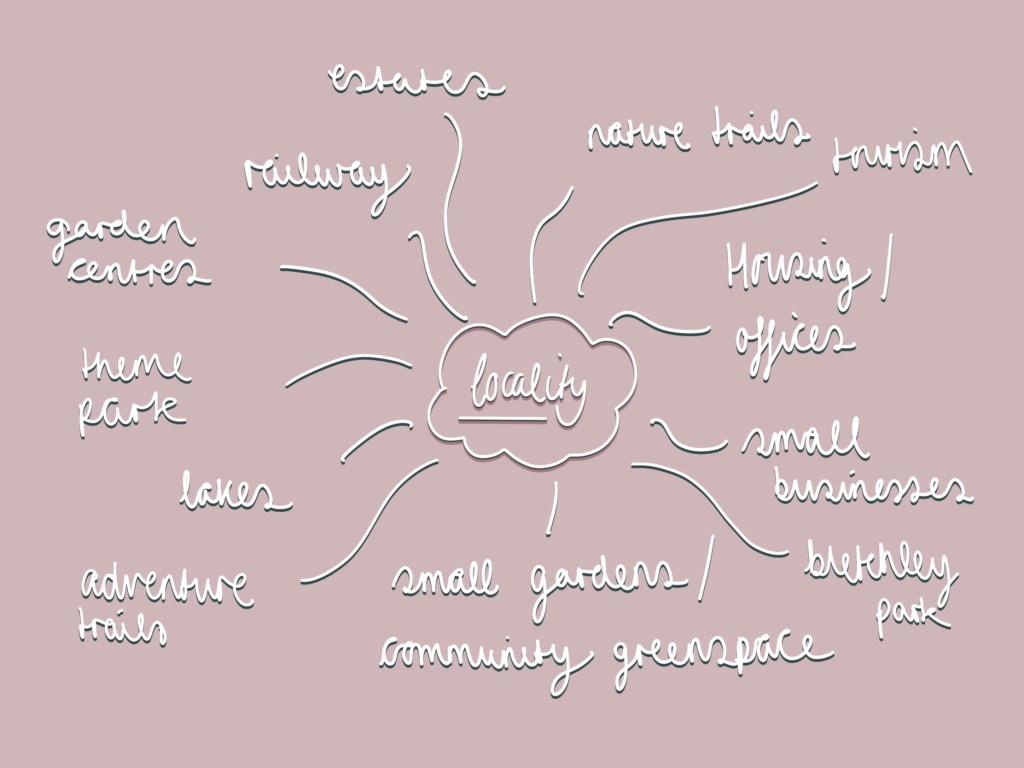 estates
nature trails
tourism
railway
garden
centres
Housing/
offices
theme
park
locality
small
businesses
lakes
bletchley
park
adventure
trails
small gardens/
community greenspace